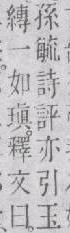 孫毓詩評亦引玉
縳一如瑱釋文曰